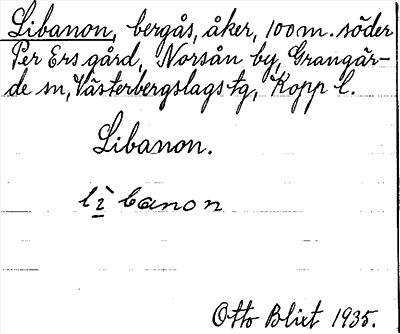 Libanon, bergås, åker, 100 m. söder
Per Ers gård, Norsån by, Grangär-
de sn, Västerbergslags tg, Kopp l.
Libanon.
lì banon
Otto Blixt 1935.